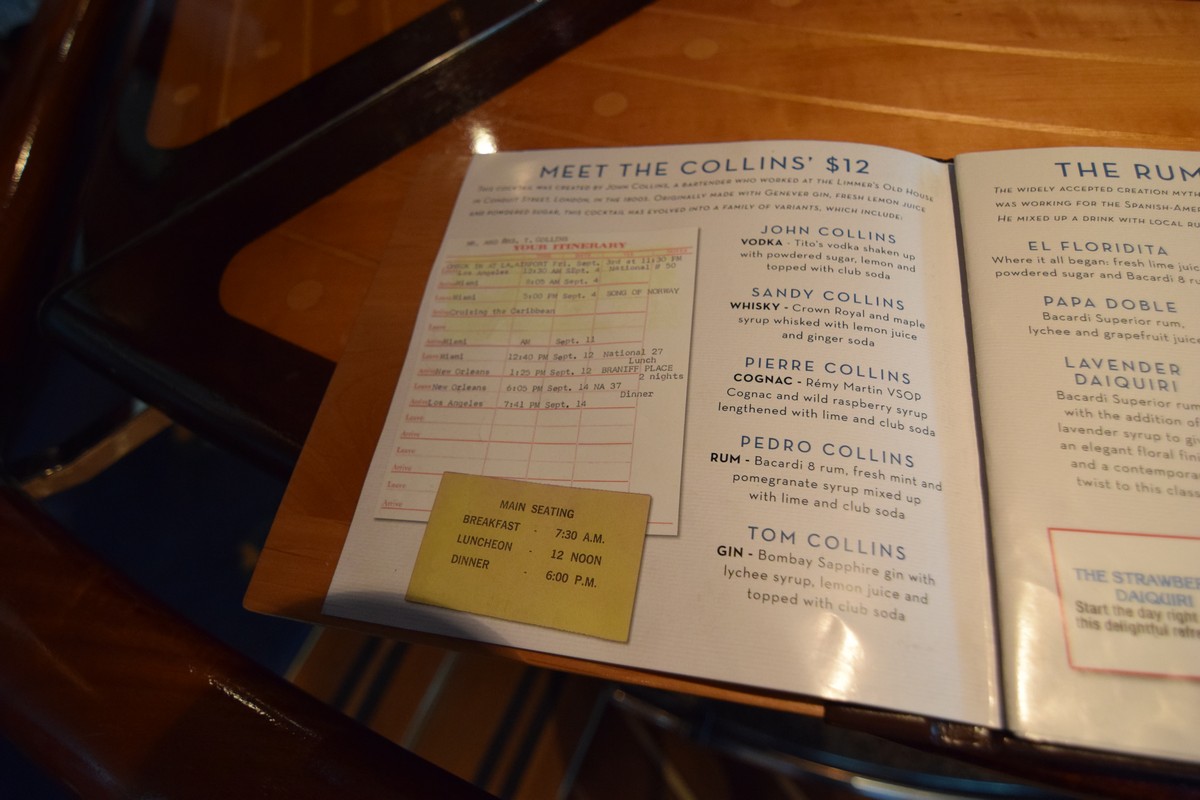 MEET THE COLLINS' $12
THIS COCKTAIL WAS CREATED BY JOHN COLLINS, A BARTENDER WHO WORKED AT THE LIMMER'S OLD HOUSE
IN CONDUIT STREET LONDON, IN THE 1800S. ORIGINALLY MADE WITH GENEVER GIN, FRESH LEMON JUICE
AND POWDERED SUGAR, THIS COCKTAIL WAS EVOLVED INTO A FAMILY OF VARIANTS, WHICH INCLUDE:
MR. AND MRS. T. COLLINS
YOUR ITINERARY
CHECK IN AT LA AIRPORT Fri. Sept. 3rd at 11:30 PM
Los Angeles 12:30 AM SEpt. 4 National # 50
Miami 8:05 AM Sept. 4
Miami 5:00 PM Sept. 4 SONG OF NORWAY
Cruising the Caribbean
Leave
Miami AM Sept. 11
Leave Miami 12:40 PM Sept. 12 National 27
Lunch
New Orleans 1:25 PM Sept. 12 BRANIFF PLACE
2 nights
New Orleans 6:05 PM Sept. 14 NA 37
Dinner
Los Angeles 7:41 PM Sept. 14
Leave
Arrive
Leave
Arrive
Leave
Arrive
MAIN SEATING
BREAKFAST - 7:30 A.M.
LUNCHEON - 12 NOON
DINNER - 6:00 P.M.
JOHN COLLINS
VODKA - Tito's vodka shaken up
with powdered sugar, lemon and
topped with club soda
SANDY COLLINS
WHISKY - Crown Royal and maple
syrup whisked with lemon juice
and ginger soda
PIERRE COLLINS
COGNAC - Rémy Martin VSOP
Cognac and wild raspberry syrup
lengthened with lime and club soda
PEDRO COLLINS
RUM - Bacardi 8 rum, fresh mint and
pomegranate syrup mixed up
with lime and club soda
TOM COLLINS
GIN - Bombay Sapphire gin with
lychee syrup, lemon juice and
topped with club soda
THE RUM
THE WIDELY ACCEPTED CREATION MYTH
WAS WORKING FOR THE SPANISH-AMER
HE MIXED UP A DRINK WITH LOCAL RU
EL FLORIDITA
Where it all began: fresh lime juic
powdered sugar and Bacardi 8 ru
PAPA DOBLE
Bacardi Superior rum,
lychee and grapefruit juice
LAVENDER
DAIQUIRI
Bacardi Superior rum
with the addition of
lavender syrup to giv
an elegant floral fini
and a contempora
twist to this class
THE STRAWBER
DAIQUIRI
Start the day right
this delightful refre